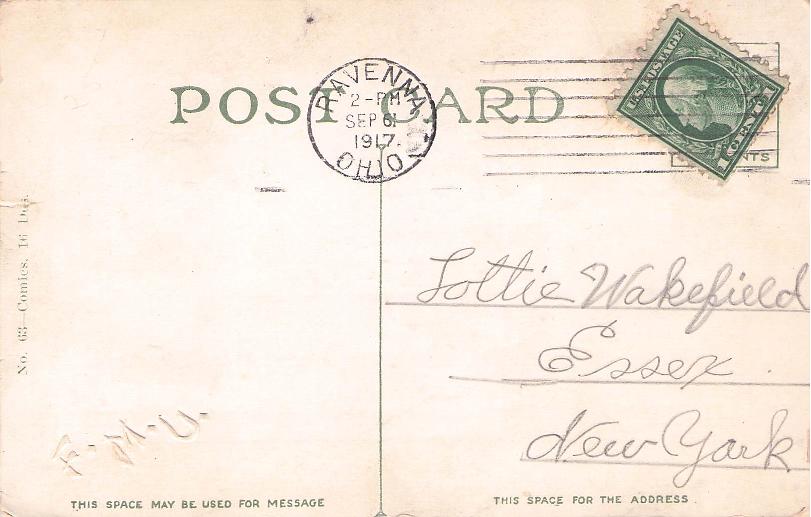 POST CARD
RAVENNA
2-PM
SEP 6
1917
OHIO
U.S. POSTAGE
No. 63—Comics, 16 Des.
Lottie Wakefield
Essex.
New York
F.M.U.
THIS SPACE MAY BE USED FOR MESSAGE
THIS SPACE FOR THE ADDRESS.